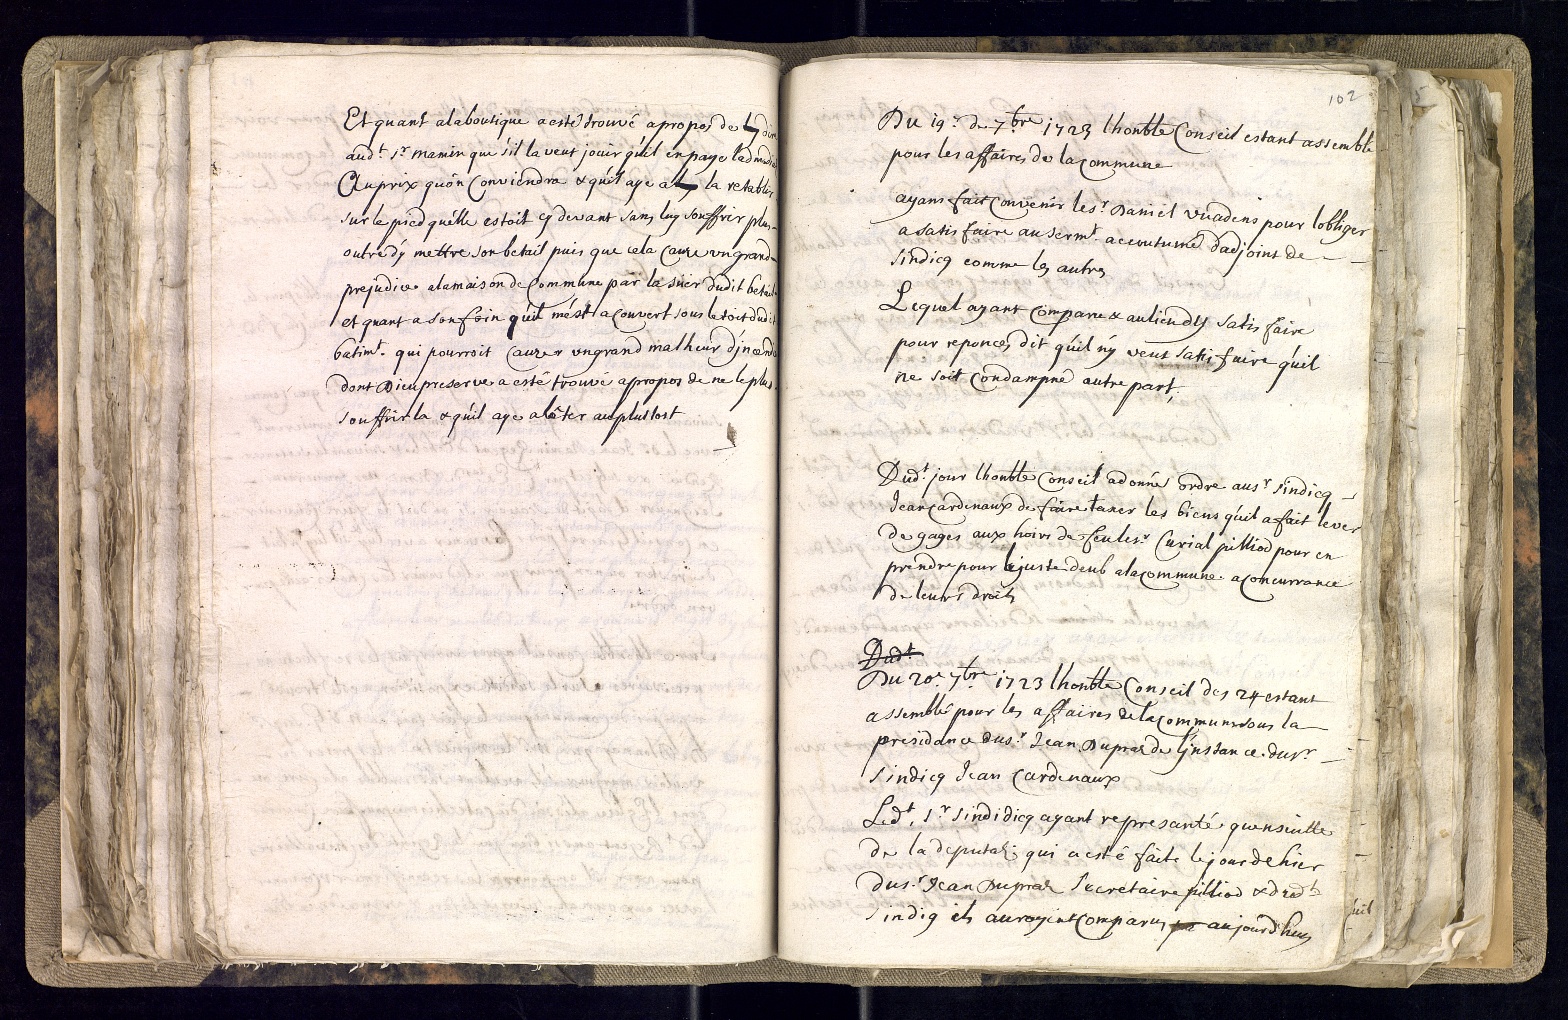 Et quant a la boutique a esté trouvé apropos de dire
aud.t S.r mamin que s'il la veut jouir qu'il en paye
Au prix quón Conviendra & qu'il aye a la retablir
sur le pied quélle estoit cy devant sans luy souffrir plus
outre d'y mettre son betail puis que cela cauze un grand
prejudice a la maison de Commune par la suier dudit betail
et quant a son foin qu'il mést a couvert sous le toit dudit
batim.t qui pourroit Cauzer un grand malheur d'jncendie
dont Dieu preserve a esté trouvé apropos de ne le plus
souffrir la & qu'il aye a lôter au plustost
102
Du 19.e de 7bre 1723 lhonble Conseil estant assemblé
pour les affaires de la commune
ayans fait Convenir le s.r Daniel vuadens pour lobliger
a satisfaire au serm.t accoutumé dadjoint de
sindicq comme les autres
Lequel ayant Comparu & au lieu dy satisfaire
pour reponces dit qu'il n'y veut satisfaire qu'il
ne soit Condampné autre part,
Dud.t jour lhonble Conseil a donné ordre au s.r sindicq
Jean Cardenaux de faire taxer les biens qu'il a fait lever
de gages aux hoirs de feu le s.r Curial pilliod pour en
prendre pour le juste deub a la commune a Concurrance
de leurs droits
Dud.t
Du 20.e 7bre 1723 lhonble Conseil des 24 estant
assemblé pour les affaires de la Commune sous la
presidance du s.r Jean Dupraz de l'jnstance du s.r
sindicq Jean Cardenaux
Led.t s.r sindidicq ayant represanté quensuitte
de la deputa.on qui a esté faite le jour dehier
du s.r Jean Dupraz Secretaire pilliod & dud.t
sindiq ils auroyent Comparus aujourdhuy